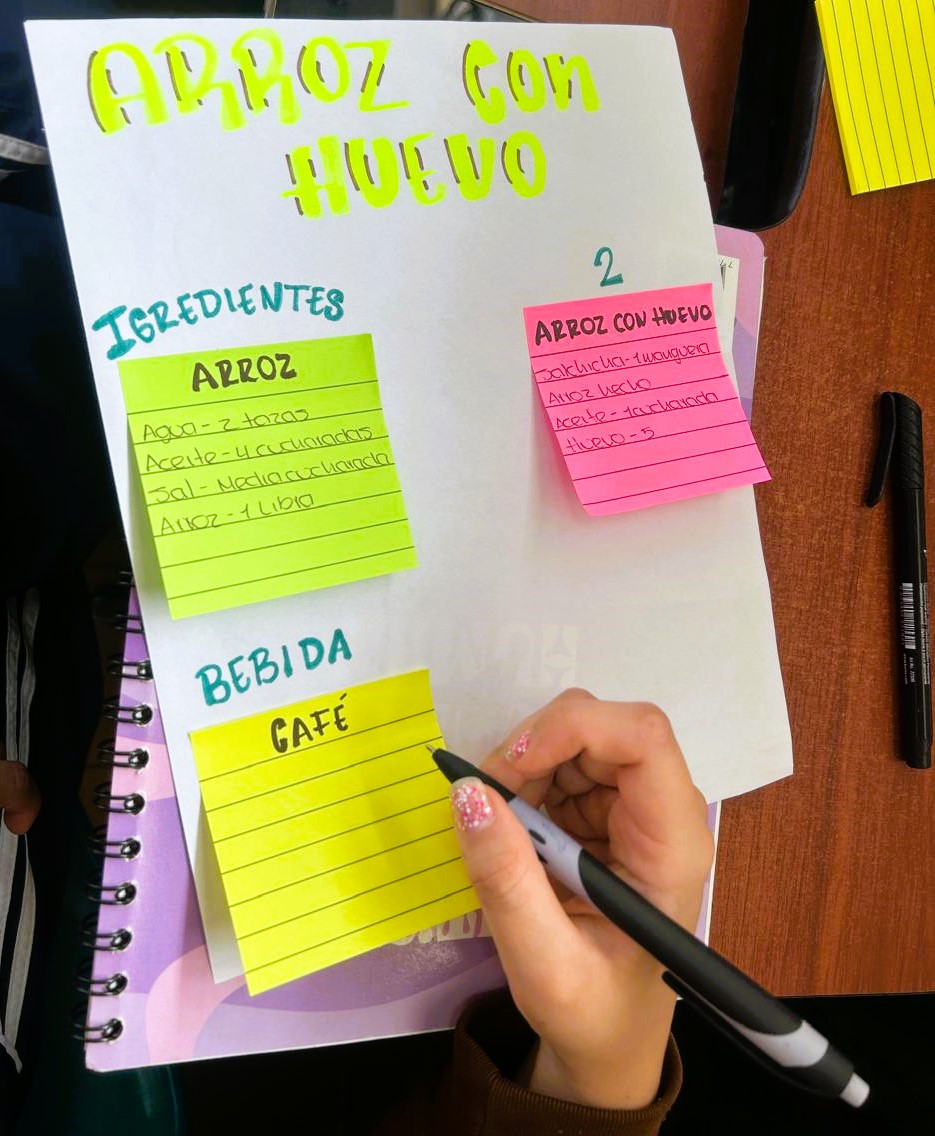 ARROZ con
HUEVO
IGREDIENTES
ARROZ
Agua - 2 tazas
Aceite - 4 cucharadas
Sal - Media cucharada
Arroz - 1 Libra
2
ARROZ CON HUEVO
Salchicha - 1 manguera
Arroz hecho
Aceite - 1 cucharada
Huevo - 5
BEBIDA
CAFÉ